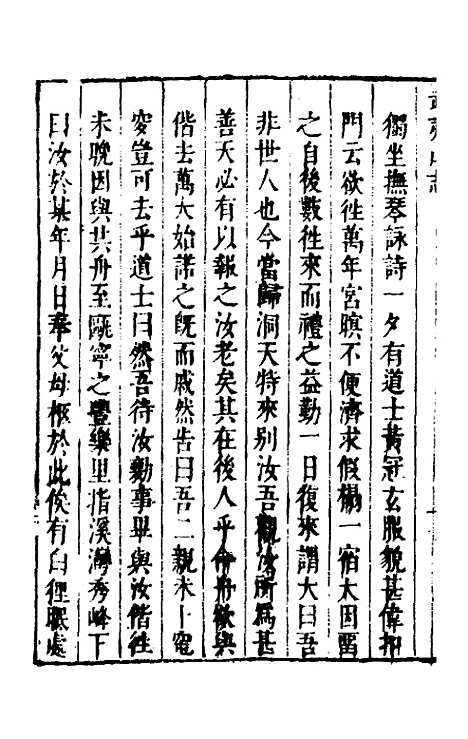 獨坐撫琴詠詩一夕有道士黃冠玄服貌甚偉扣
門云欲徃萬年宮暝不便濟求假榻一宿大因畱
之自後數徃來而禮之益勤一日復來謂大曰吾
非世人也今當歸洞天特來別汝吾觀汝所爲甚
善天必有以報之汝老矣其在後人乎命舟欲與
偕去萬大始諾之旣而戚然告曰吾二親未卜窀
穸豈可去乎道士曰然吾待汝勷事畢與汝偕徃
未晚因與共舟至甌寧之豐樂里指溪灣秀峰下
曰汝於某年月日奉父母柩於此俟有白狸眠處